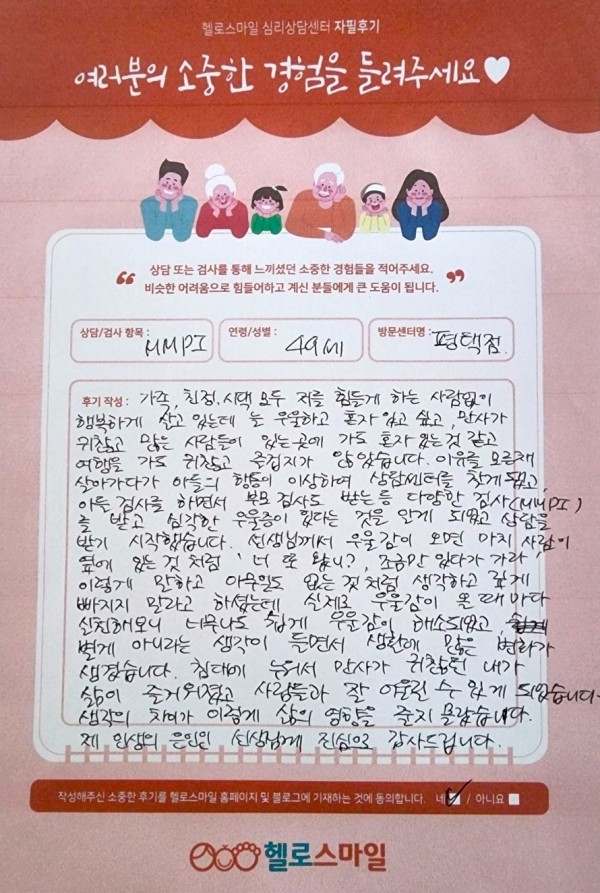 헬로스마일 심리상담센터 자필후기
여러분의 소중한 경험을 들려주세요♥
상담 또는 검사를 통해 느끼셨던 소중한 경험들을 적어주세요.
비슷한 어려움으로 힘들어하고 계신 분들에게 큰 도움이 됩니다.
상담/검사 항목 : MMPI
연령/성별 : 49세
방문센터명 : 평택점.
후기 작성 : 가족, 친정.시댁 모두 저를 힘들게 하는 사람없이
행복하게 살고 있는데 늘 우울하고 혼자 있고 싶고, 만사가
귀찮고 많은 사람들이 있는곳에 가도 혼자 있는것 같고
여행을 가도 귀찮고 즐겁지가 않았습니다. 이유를 모른채
살아가다가 아들의 행동이 이상하여 상담센터를 찾게 되었고,
아들 검사를 하면서 부모 검사도 받는등 다양한 검사(MMPI)
를 받고 심각한 우울증이 있다는 것을 알게 되었고 상담을
받기 시작했습니다. 선생님께서 우울감이 오면 마치 사람이
옆에 있는 것 처럼 '너 또 왔니?, 조금만 있다가 가라'
이렇게 말하고 아무일도 없는것 처럼 생각하고 깊게
빠지지 말라고 하셨는데 실제로 우울감이 올 때마다
실천해보니 너무나도 쉽게 우울감이 해소되었고,
별게 아니라는 생각이 들면서 생활에 많은 변화가
생겼습니다. 침대에 누워서 만사가 귀찮던 내가
삶이 즐거워졌고 사람들과 잘 어울릴 수 있게 되었습니다.
생각의 차이가 이렇게 삶의 영향을 줄지 몰랐습니다.
제 인생의 은인인 선생님께 진심으로 감사드립니다.
작성해주신 소중한 후기를 헬로스마일 홈페이지 및 블로그에 기재하는 것에 동의합니다. 네 / 아니요
헬로스마일